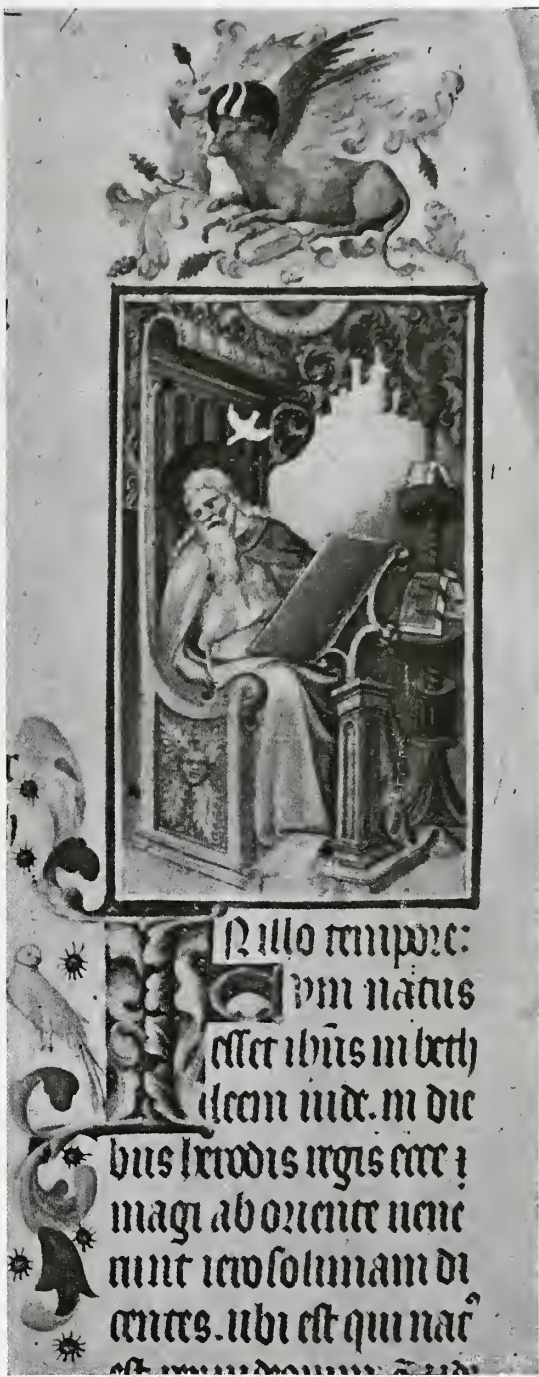 IN illo tempore:
Cum natus
esset ihūs in beth
leem iude. in die
bus herodis regis ecce
magi ab oriente uene
runt ierosolimam di
centes. ubi est qui nat᾿
est